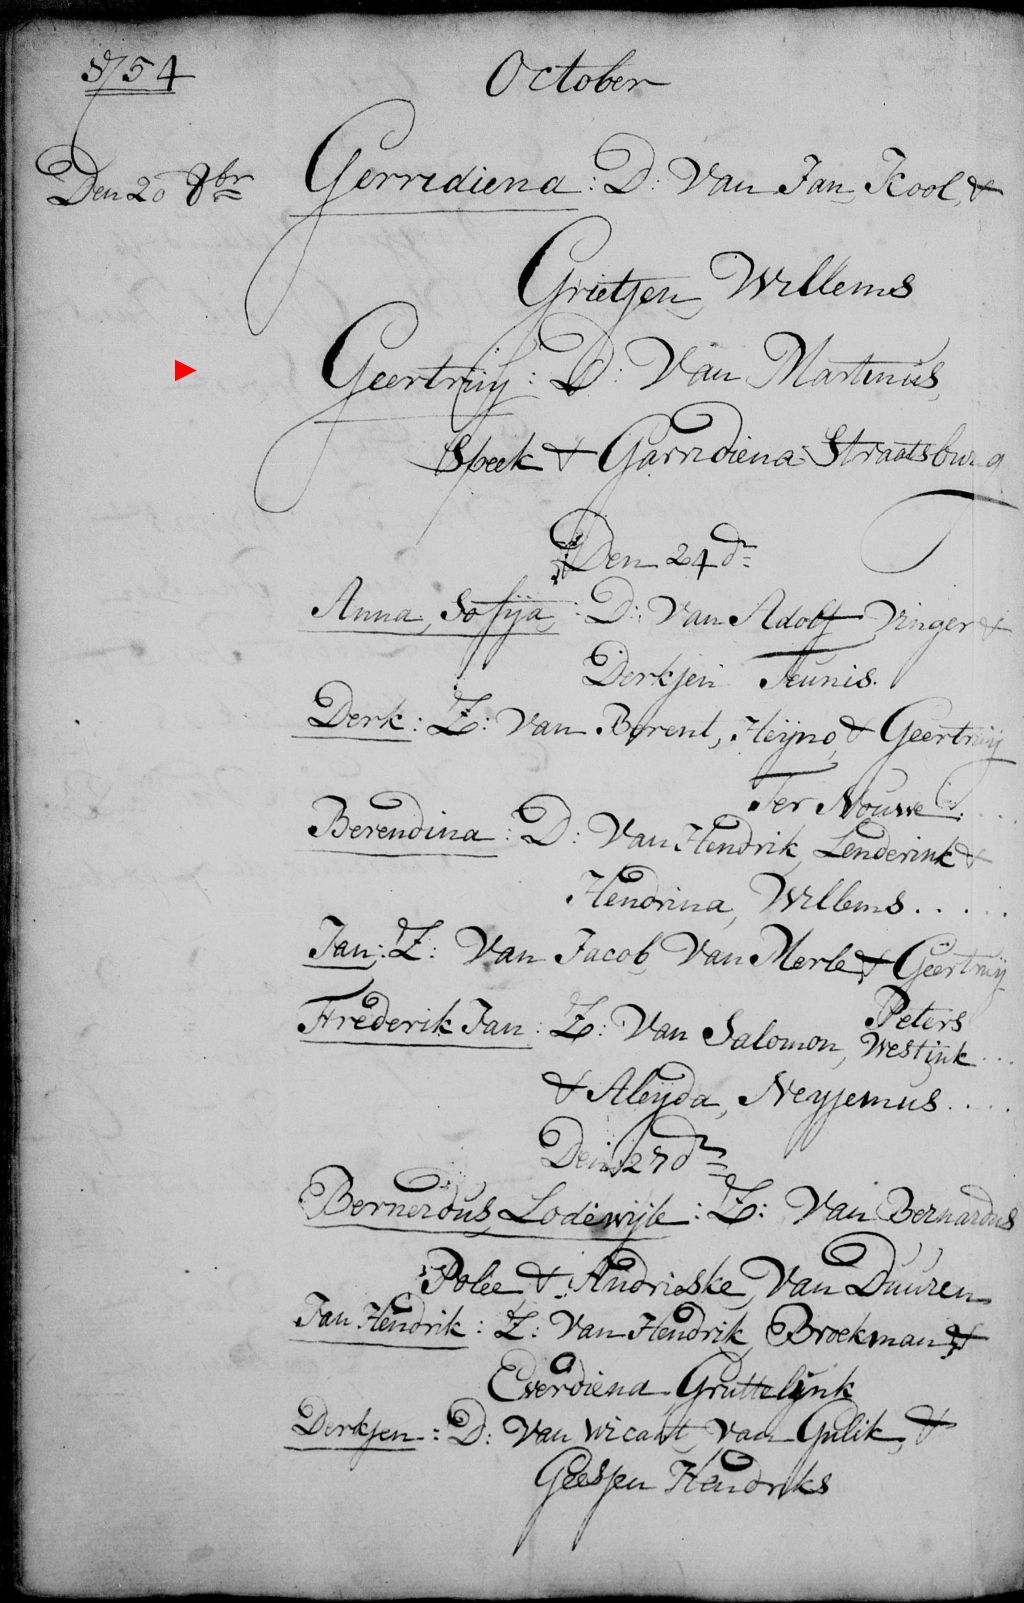 1754 October
Den 20 8br Gerridiena : D: Van Jan Kool, &
Grietjen Willems
Geertruy : D: Van Martinus,
Speek & Garridiena Straatsburg
Den 24 dr
Anna, Sofija, : D: Van Adolf Vinger &
Derkjen Teunis.
Derk : Z: Van Berent, Heijno, & Geertruij
Ter Nouwe
Berendina : D: Van Hendrik, Lenderink &
Hendrina, Willems . . . . .
Jan : Z: Van Jacob Van Merle & Geertruij
Peters
Frederik Jan : Z: Van Salomon, Westink . . .
& Aleyda, Neyjemus . . . .
Den 27 dr
Bernerdus, Lodewijk : Z: Van Bernardus
Polee & Andrieske, Van Duuren
Jan Hendrik : Z: Van Hendrik, Broekman &
Everdiena Gruttelynk
Derkjen : D: Van Wicant, Van Gulik, &
Geesjen Hendriks